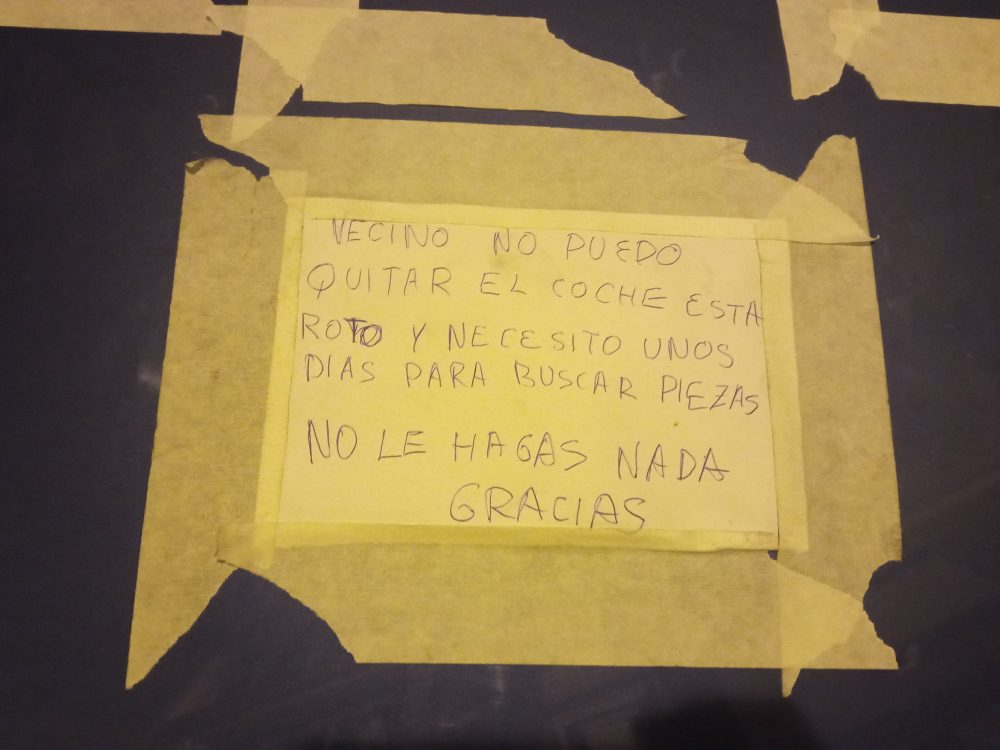 VECINO NO PUEDO
QUITAR EL COCHE ESTA
ROTO Y NECESITO UNOS
DIAS PARA BUSCAR PIEZAS
NO LE HAGAS NADA
GRACIAS